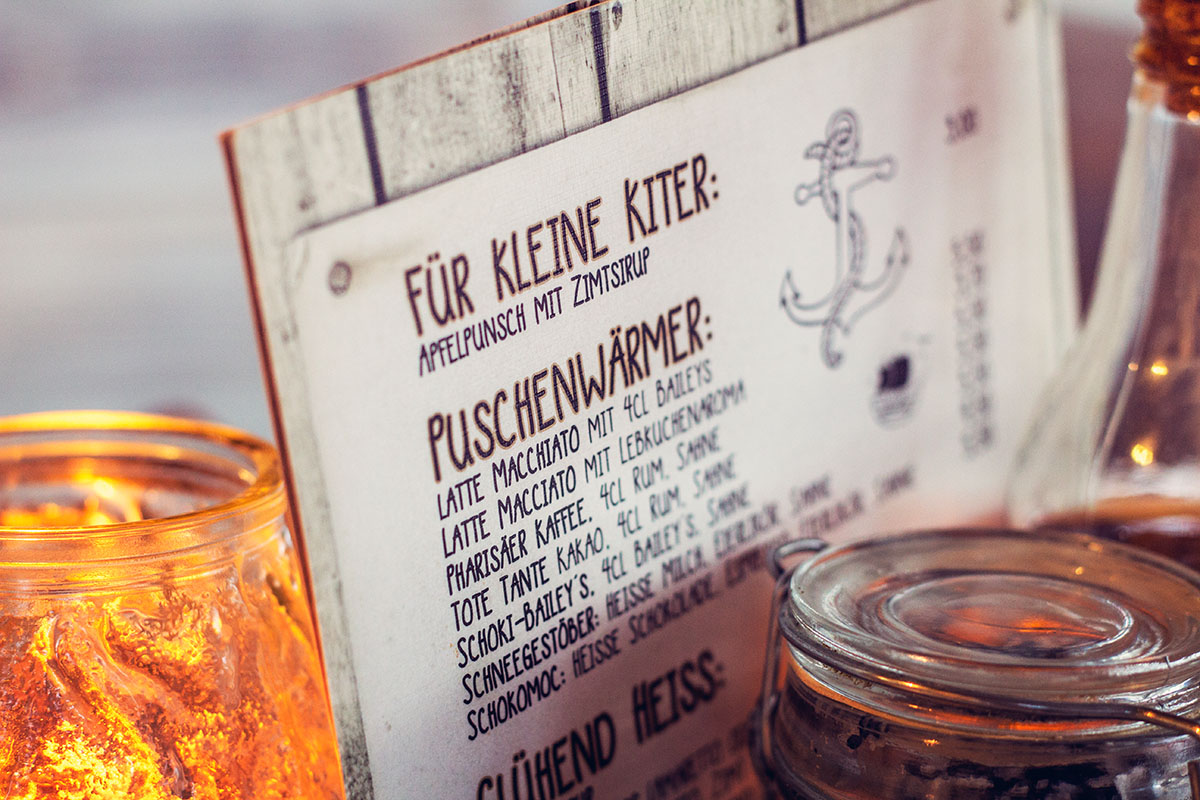 FÜR KLEINE KITER:
APFELPUNSCH MIT ZIMTSIRUP
PUSCHENWÄRMER:
LATTE MACCHIATO MIT 4CL BAILEYS
LATTE MACCIATO MIT LEBKUCHENAROMA
PHARISÄER KAFFEE, 4CL RUM, SAHNE
TOTE TANTE KAKAO, 4CL RUM, SAHNE
SCHOKI-BAILEY'S, 4CL BAILEY'S, SAHNE
SCHNEEGESTÖBER: HEISSE MILCH, EIERLIKÖR, SAHNE
SCHOKOMOC: HEISSE SCHOKOLADE, EIERLIKÖR, SAHNE
GLÜHEND HEISS: